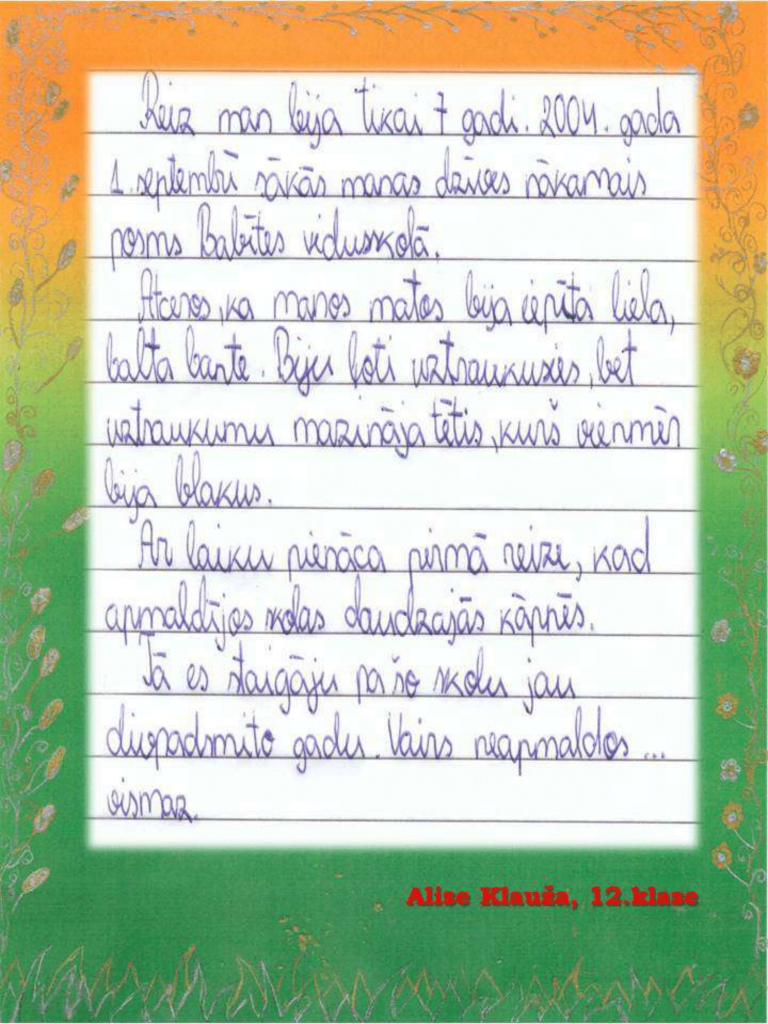 Reiz man bija tikai 7 gadi. 2004. gada
1. septembrī sākās manas dzīves nākamais
posms Babītes vidusskolā.
Atceros, ka manos matos bija iepīta liela,
balta bante. Biju ļoti uztraukusies, bet
uztraukumu mazināja tētis, kurš vienmēr
bija blakus.
Ar laiku pienāca pirmā reize, kad
apmaldījos skolas daudzajās kāpnēs.
Tā es staigāju pa šo skolu jau
divpadsmito gadu. Vairs neapmaldos ...
vismaz.
Alise Klauža, 12.klase